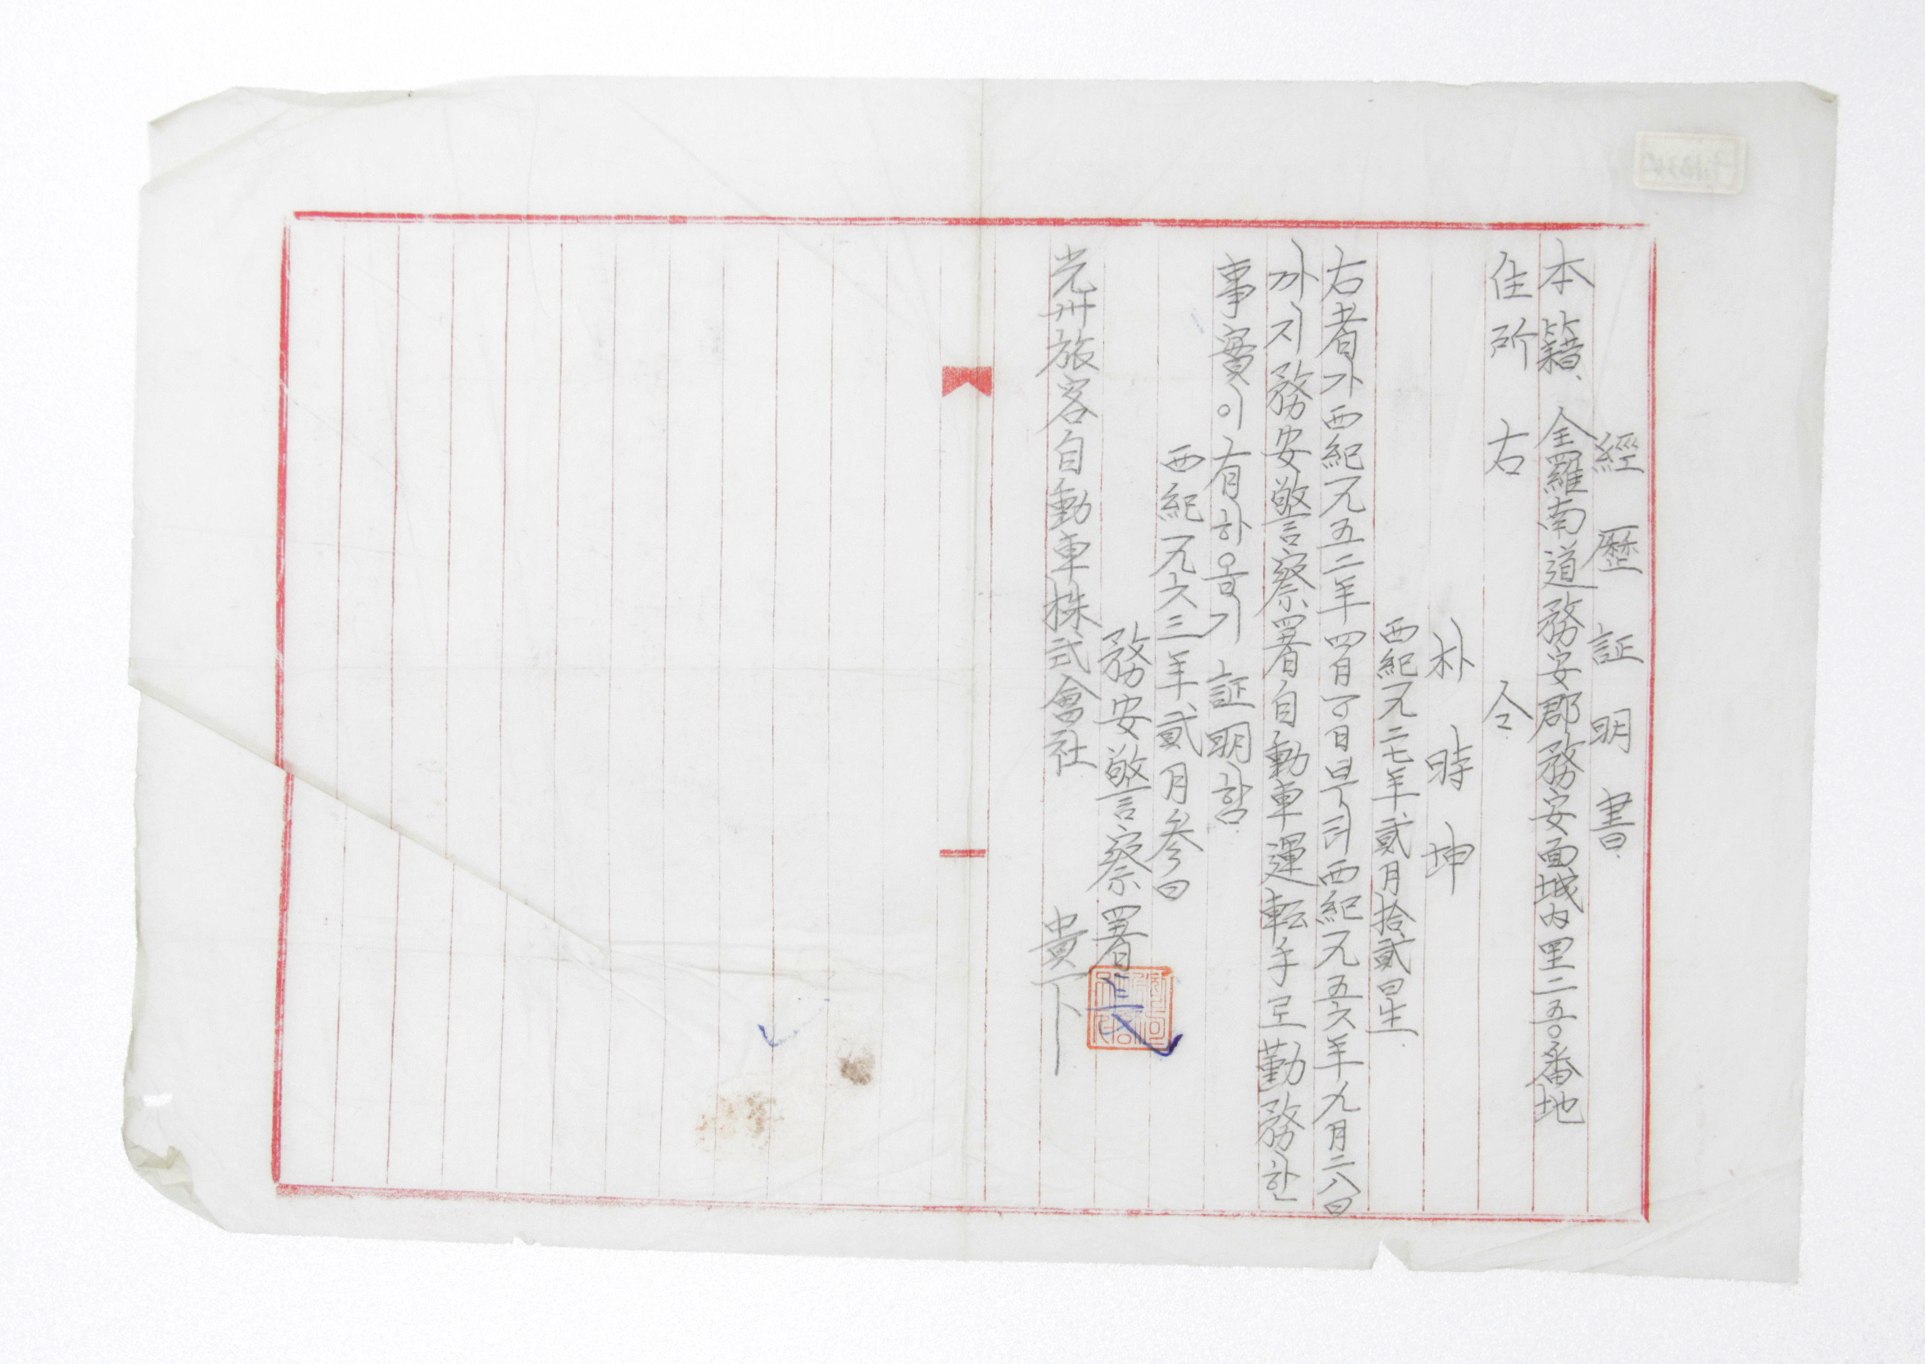 經歷証明書
本籍 全羅南道務安郡務安面城內里二五〇番地
住所 右 仝
朴時坤
西紀一九二七年貳月拾貳日生
右者가 西紀一九五二年四月一日부터 西紀一九五六年九月二八日
까지 務安警察署自動車運転手로 勤務한
事實이 有하옵기 証明함
西紀一九六三年貳月參日
務安警察署長
光州旅客自動車株式會社 貴下